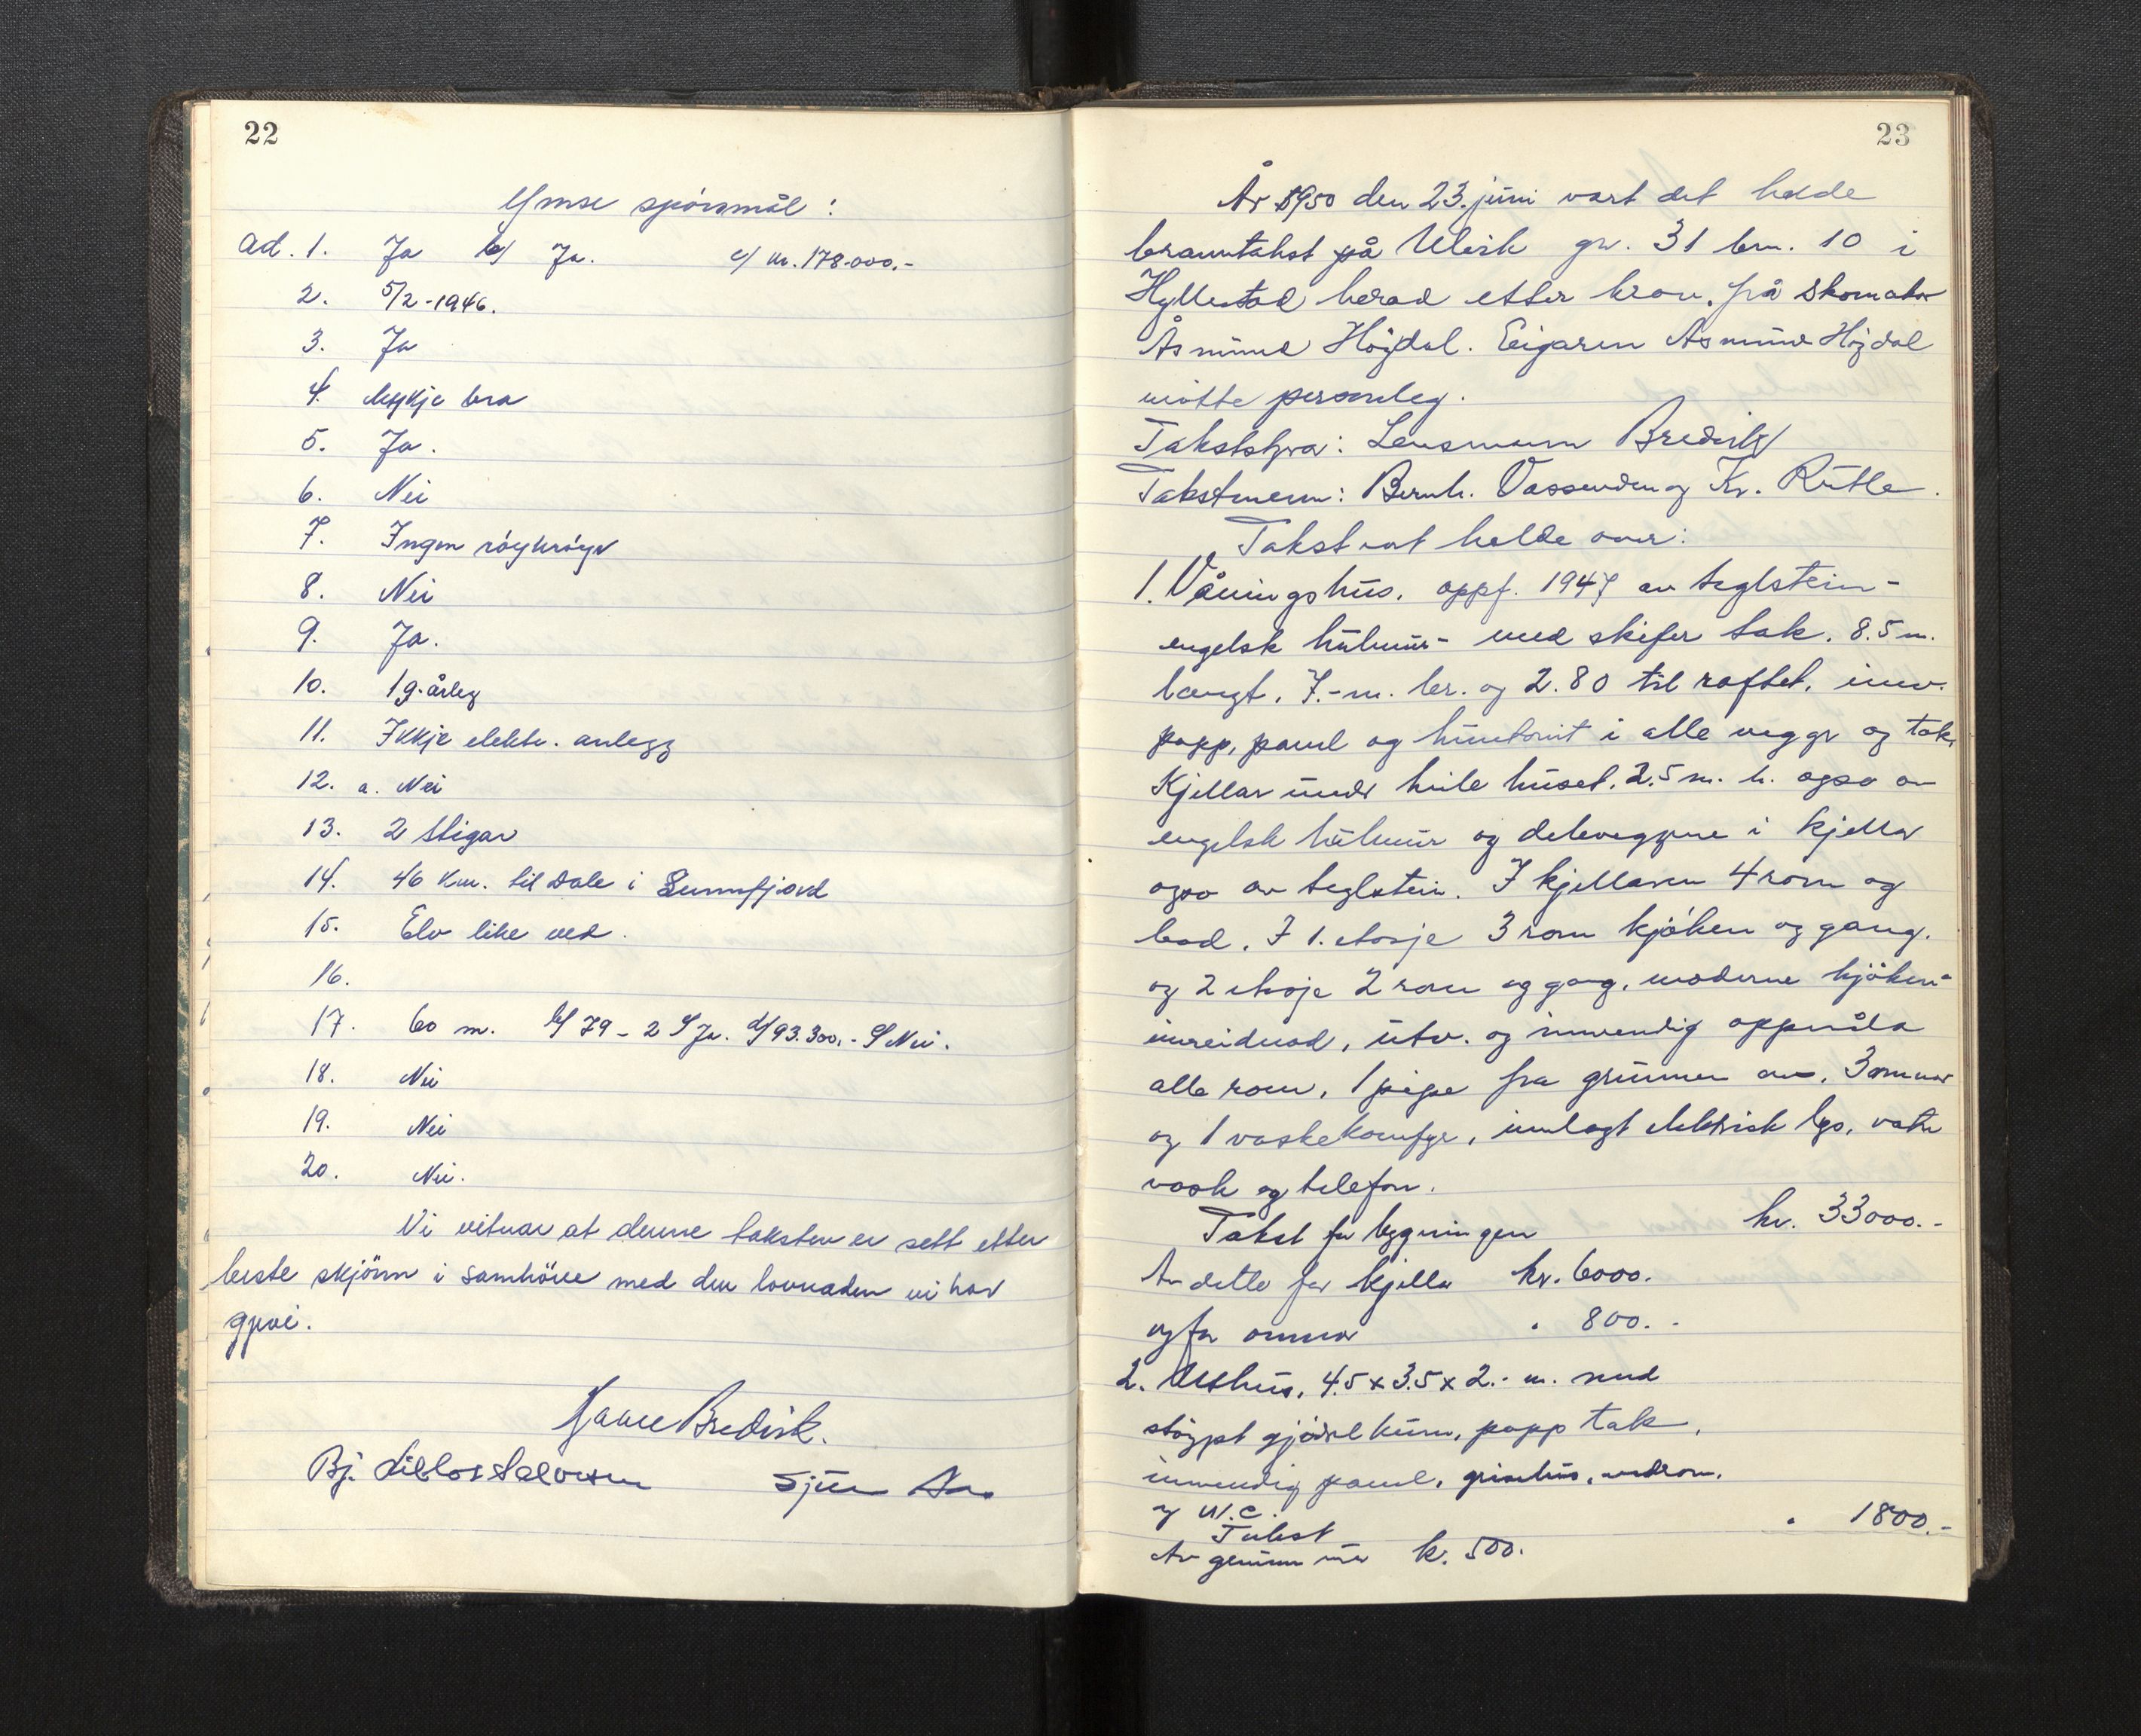 22
Ymse spörsmål:
ad. 1. Ja b/ Ja. c/ kr. 178.000.-
2. 5/2-1946.
3. Ja
4. bra
5. Ja.
6. Nei
7. Ingen
8. Nei
9. Ja.
10. 1 g. årleg
11. Ikkje elektr. anlegg
12. a. Nei
13. 2 stigar
14. 46 km. til Dale i Sunnfjord
15. Elv like ved.
16.
17. 60 m. b/ 79-2 c/ Ja. d/ 93.300.- e/ Nei.
18. Nei
19. Nei
20. Nei.
Vi vitnar at denne taksten er sett etter
beste skjönn i samhöve med den lovnaden vi har
gjevi.
Bredvik.
Bj. Sjur Aas
23
År 1950 den 23. juni vart det halde
branntakst på gn. 31 bn. 10 i
Hyllestad herad etter krav frå skomakar
Åsmund Höjdal. Eigaren Åsmund Höjdal
mötte personleg.
Takststyra: Lensmann Bredvik
Takstmenn: Bernh. Vassenden og Kr. Rutle.
Takst vart halde over:
1. Våningshus, oppf. 1947 av teglstein-
engelsk hulmur- med skifer tak. 8.5 m.
langt, 7.- m. br. og 2.80 til raftet. innv.
papp, panel og huntonit i alle veggr og tak,
Kjellar under heile huset. 2.5 m. h. også av
engelsk hulmur og deleveggene i kjellar
også av teglstein. I kjellaren 4 rom og
bad. I 1. etasje 3 rom kjöken og gang.
og 2 etasje 2 rom og gang, moderne kjöken-
innreidnad, utv. og innvendig oppmåla
alle rom, 1 pipe fra grunnen av, 3 omnar
og 1 vaskekomfyr, innlagt elektrisk lys, vatn
vask og telefon.
Takst for bygningen kr. 33000.-
Av dette for kjellar kr. 6000.
og for omnar " 800.-
2. Uthus, 4.5 x 3.5 x 2.- m. med
stöypt gjödselkum, papp tak,
innvendig panel, grisehus, vedrom,
og W.C.
Takst " 1800.-
Av grunnmur kr. 500.